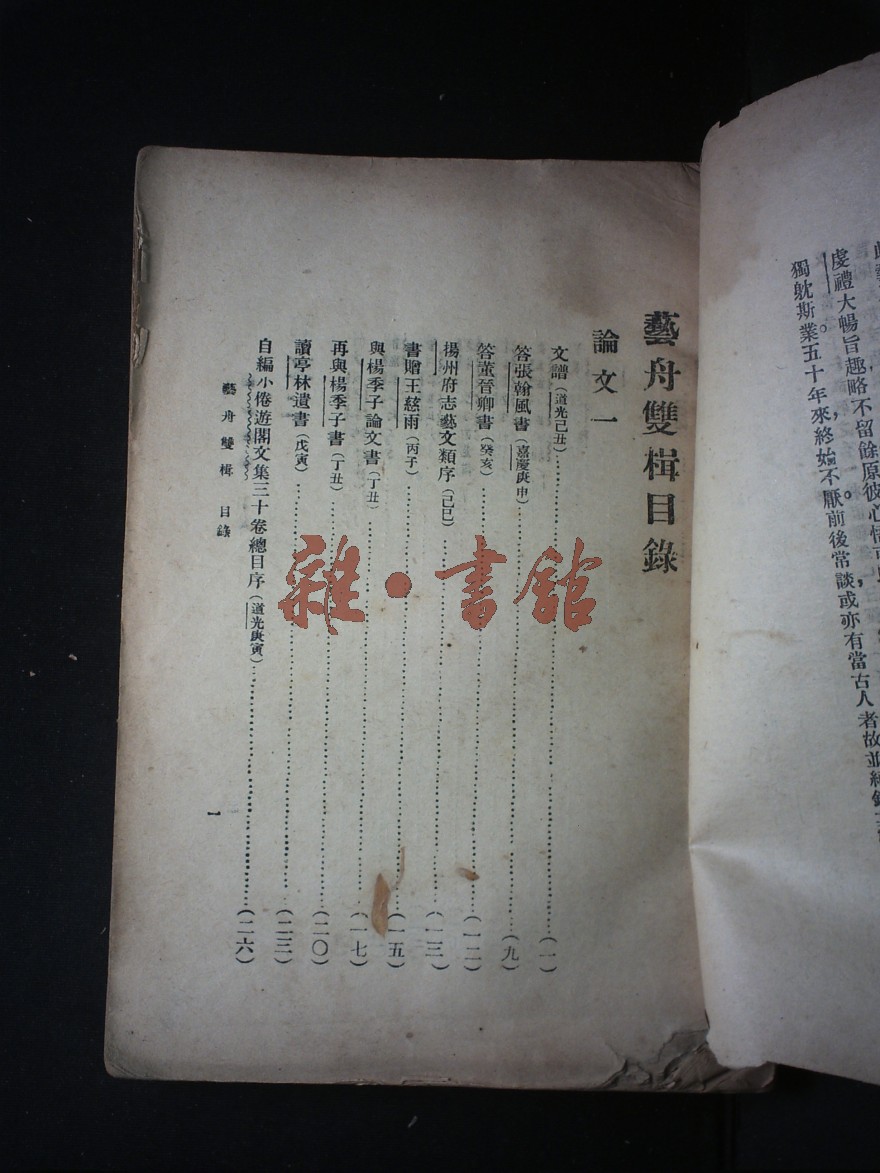 虔禮大暢旨趣略不留餘原彼心悟
獨躭斯業五十年來終始不厭前後常談或亦有當古人者故並
藝舟雙楫目錄
論文一
文譜(道光己丑)……(一)
答張翰風書(嘉慶庚申)……(九)
答董晉卿書(癸亥)……(一二)
揚州府志藝文類序(己巳)……(一三)
書贈王慈雨(丙子)……(一五)
與楊季子論文書(丁丑)……(一七)
再與楊季子書(丁丑)……(二〇)
讀亭林遺書(戊寅)……(二三)
自編小倦遊閣文集三十卷總目序(道光庚寅)……(二六)
藝舟雙楫 目錄
一
雜·書館